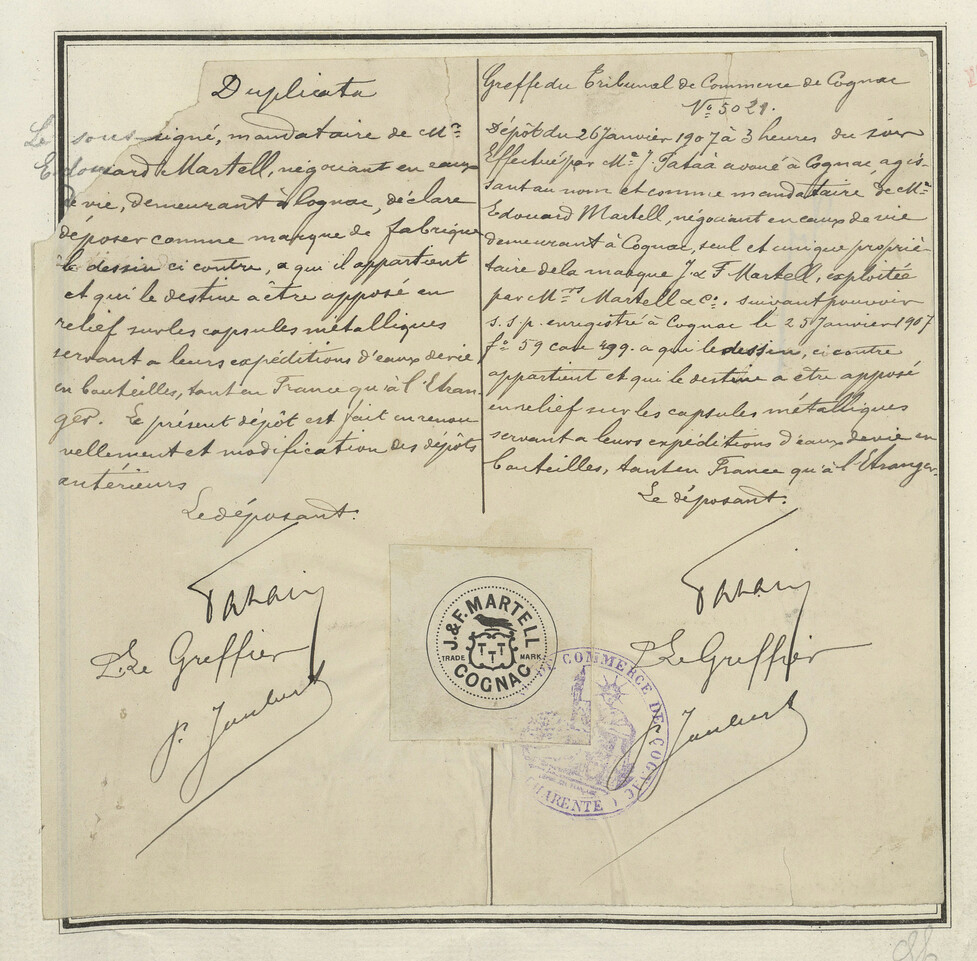 Duplicata
Le sous-signé, mandataire de Mr
Edouard Martell, négociant en eaux
de vie, demeurant à Cognac, déclare
déposer comme marque de fabrique
le dessin ci contre, a qui il appartient
et qui le destine a être apposé en
relief sur les capsules métalliques
servant a leurs expéditions d'eaux de vie
en bouteilles, tant en France qu'à l'Etran-
ger. Le présent dépôt est fait en renou
vellement et modification des dépôts
antérieurs
Le déposant.
P. Le Greffier
Greffe du Tribunal de Commerce de Cognac
No 5029.
Dépôt du 26 Janvier 1907 à 3 heures du soir
Effectué par Me J. avoué à Cognac, agis-
sant au nom et comme mandataire de Mr
Edouard Martell, négociant en eaux de vie
demeurant à Cognac, seul et unique proprié-
taire de la marque J & F Martell, exploitée
par Mrs Martell & Co. suivant pouvoir
s.s.p. enregistré à Cognac le 25 Janvier 1907
fo 59 case 499. a qui le dessin, ci contre
appartient et qui le destine a être apposé
en relief sur les capsules métalliques
servant a leurs expéditions d'eaux de vie en
bouteilles, tant en France qu'à l'Etranger.
Le déposant.
P. Le Greffier
J. & F. MARTELL
TRADE MARK
COGNAC
DE COMMERCE DE COGNAC
(CHARENTE)